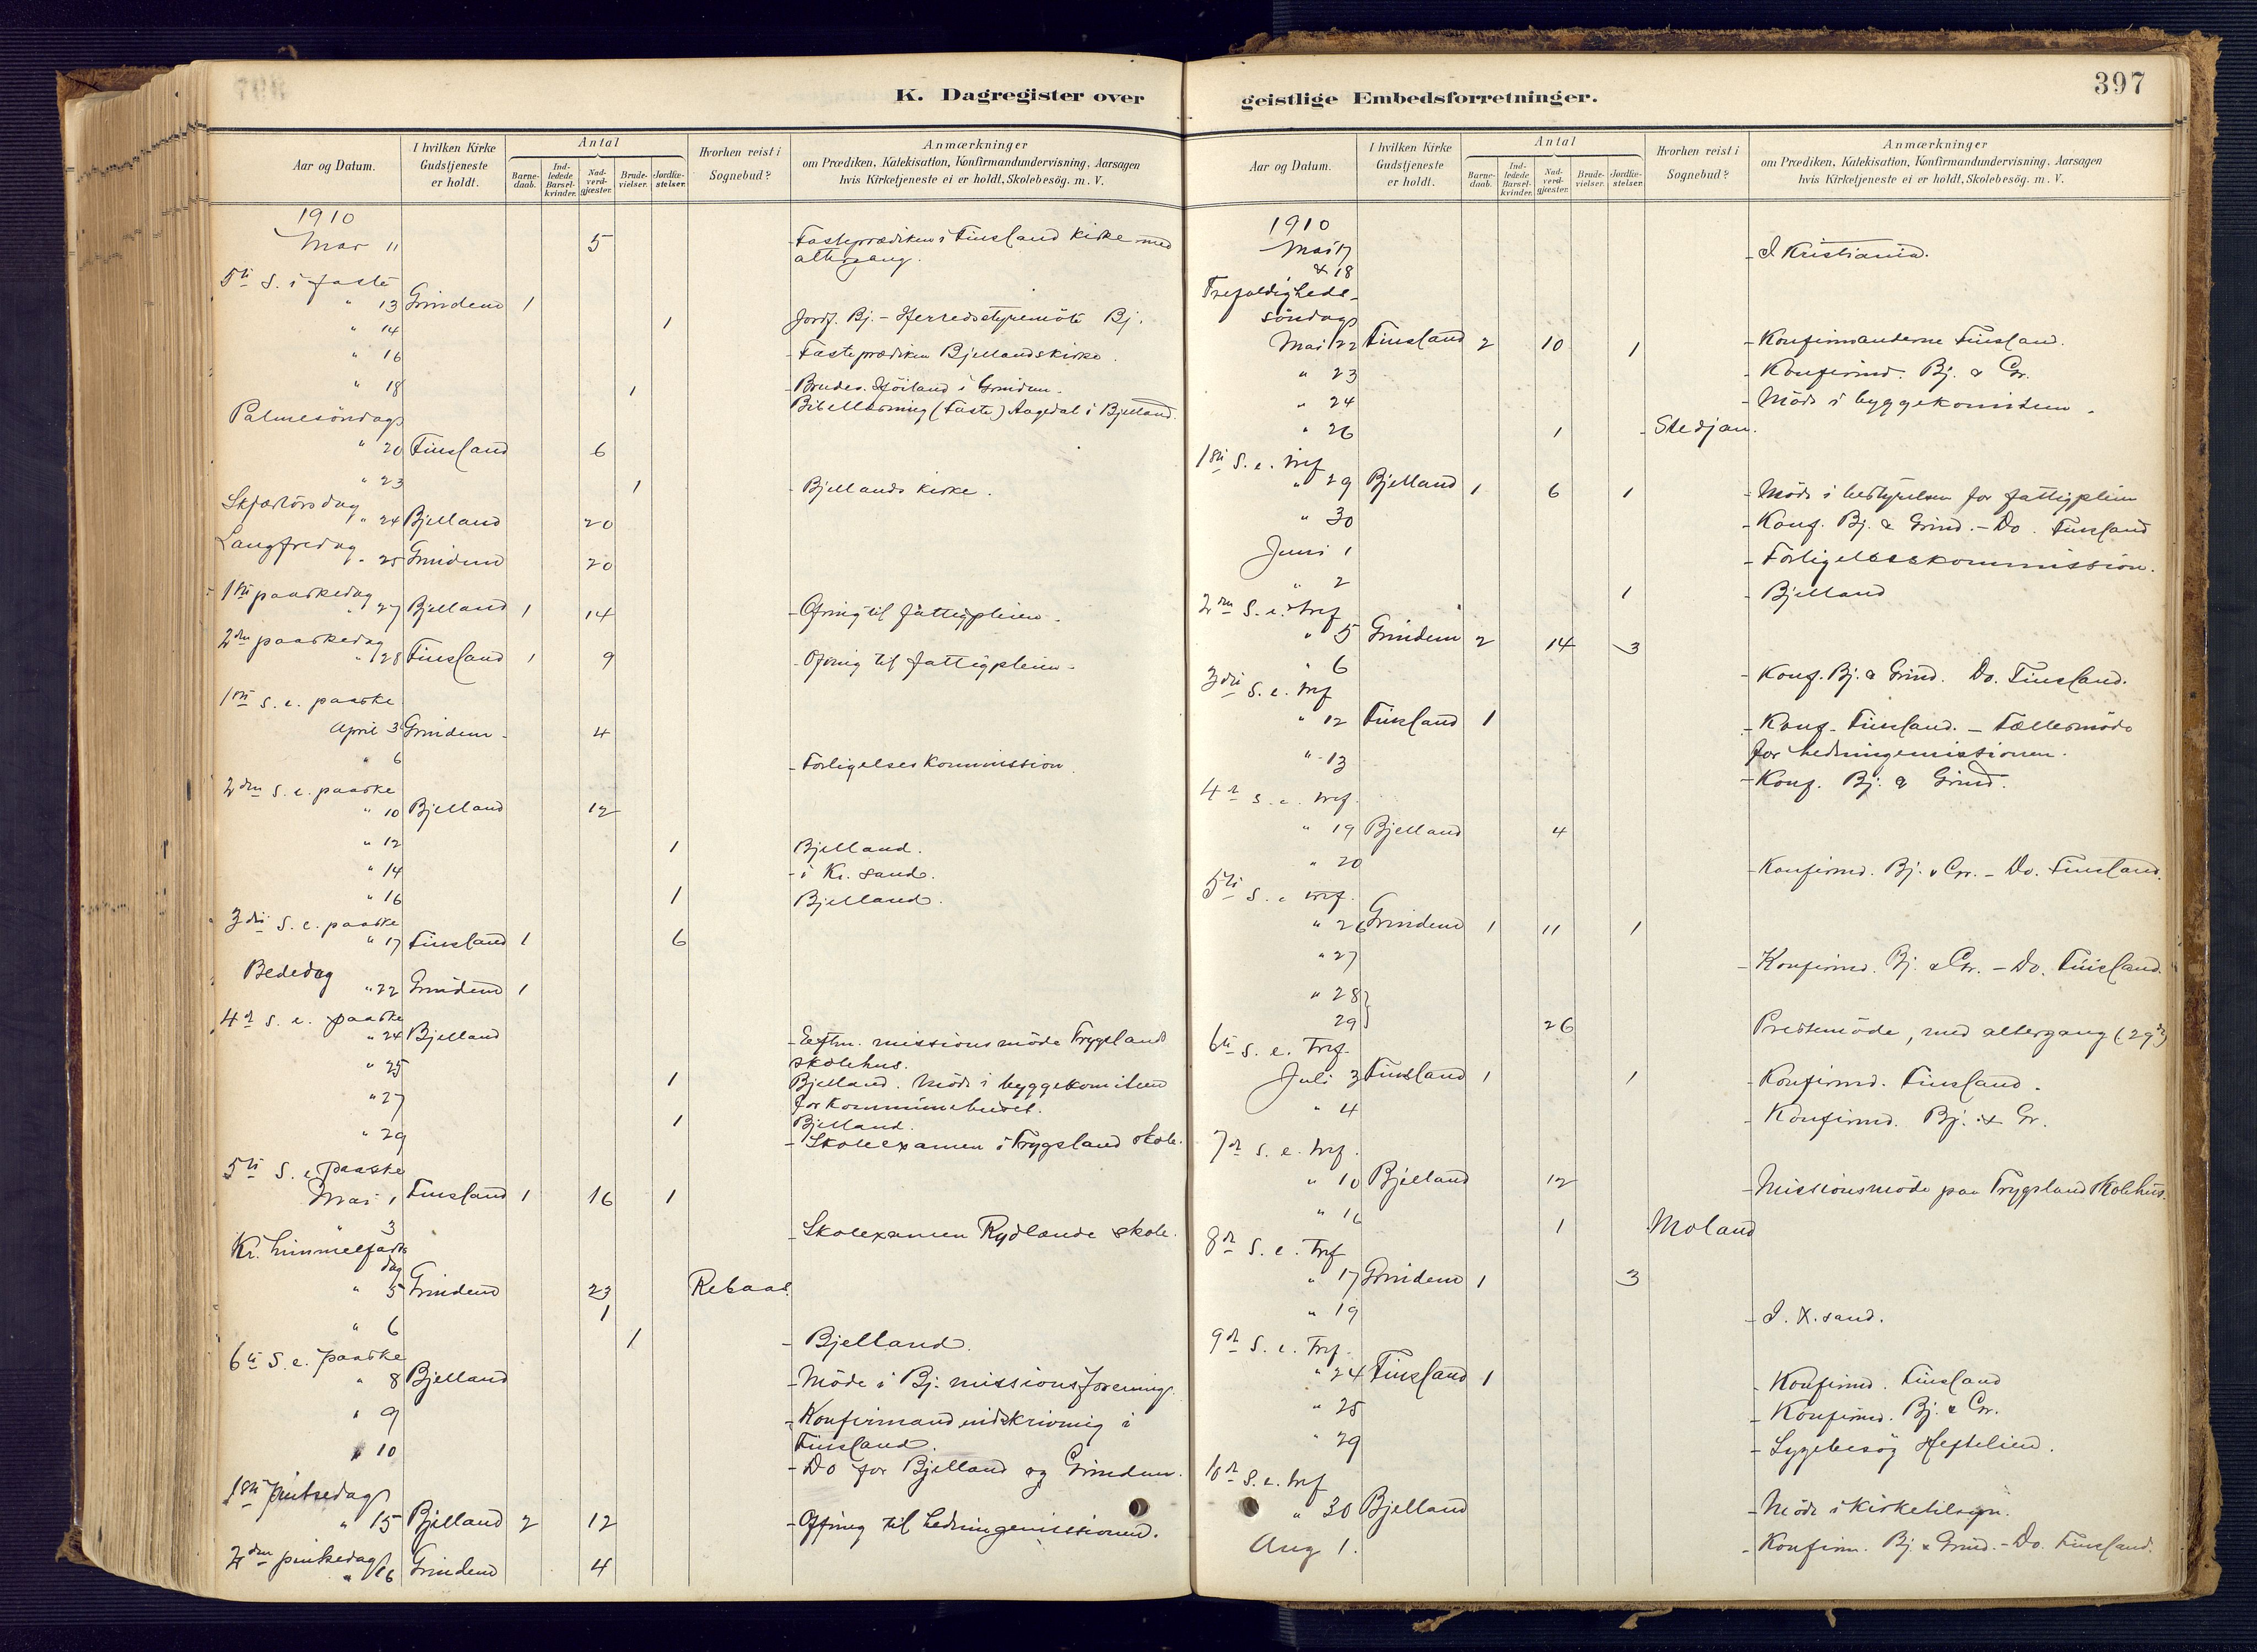 K. Dagregister over
Aar og Datum.
I hvilken Kirke Gudstjeneste er holdt.
Antal
Barnedaab.
Indledede Barselkvinder.
Nadverdgjæster.
Brudevielser.
Jordfæstelser.
Hvorhen reist i Sognebud?
Anmærkninger
om Prædiken, Katekisation, Konfirmandundervisning, Aarsagen
hvis Kirketjeneste ei er holdt, Skolebesög. m. V.
1910
Mar 11 5 - Fasteprædiken i Finsland Kirke med
altergang.
5te S. i faste
" 13 Grindem 1
" 14 1 Jordf. Bj. - Herredsstyremöte Bj.
" 16 - Fasteprædiken Bjellands kirke.
" 18 1 - Brudev. i Grindem.
Bibellæsning (Faste) Aagedal i Bjelland.
Palmesöndag
" 20 Finsland 6
" 23 1 - Bjellands kirke.
Skjærtorsdag
" 24 Bjelland 20
Langfredag
" 25 Grindem 20
1ste paaskedag
" 27 Bjelland 1 14 - Ofring til fattigpleien.
2den paaskedag
" 28 Finsland 1 9 - Ofring til fattigpleien.
1ste S. e. paaske
April 3 Grindem 4
" 6 - Forligelseskommission.
2den S. e. paaske
" 10 Bjelland 12
" 12 1 Bjelland.
" 14 - i Kr. sand.
" 16 1 Bjelland.
3die S. e. paaske
" 17 Finsland 1 6
Bededag
" 22 Grindem 1
4de S. e. paaske
" 24 Bjelland - Efthm. missionsmöde Trygsland
skolehus.
" 25 1 Bjelland. Möde i byggekomiteen
for kommunehuset.
" 27 1 Bjelland.
" 29 - Skolexamen i Trygsland skole.
5te S. e. paaske
Mai 1 Finsland 1 16 1
" 3 - Skolexamen Rydlands skole.
Kr. himmelfarts
dag
" 5 Grindem 23 Rebaas.
1
" 6 1 - Bjelland.
6te S. e. paaske
" 8 Bjelland - Möde i Bj. missionsforening.
" 9 - Konfirmandindskrivning i
Finsland.
" 10 - Do for Bjelland og Grindem.
1ste pintsedag
" 15 Bjelland 2 12 - Offring til hedningemissionen.
2den pintsedag
" 16 Grindem 4
397
geistlige Embedsforretninger.
Aar og Datum.
I hvilken Kirke Gudstjeneste er holdt.
Antal
Barnedaab.
Indledede Barselkvinder.
Nadverdgjæster.
Brudevielser.
Jordfæstelser.
Hvorhen reist i Sognebud?
Anmærkninger
om Prædiken, Katekisation, Konfirmandundervisning, Aarsagen
hvis Kirketjeneste ei er holdt, Skolebesög. m. V.
1910
Mai 17 - I Kristiania.
& 18
Trefoldigheds-
söndag
Mai 22 Finsland 2 10 1 - Konfirmanderne Finsland.
" 23 - Konfirmd. Bj. & Gr.
" 24 - Möde i byggekomiteen.
" 26 1 - Stedjan.
1ste S. e. tref
" 29 Bjelland 1 6 1 - Möde i bestyrelsen for fattigpleien
" 30 - Konf. Bj. & Grind. - Do. Finsland
Juni 1 - Forligelseskommission.
" 2 1 - Bjelland
2den S. e. tref
" 5 Grindem 2 14 3
" 6 - Konf. Bj. & Grind. Do. Finsland.
3die S. e. tref
" 12 Finsland 1 - Konf. Finsland. - Fællesmöde
for hedningemissionen.
" 13 - Konf. Bj. & Grind.
4de S. e. tref.
" 19 Bjelland 4
" 20 Konfirmd. Bj. & Gr. - Do. Finsland.
5te S. e. tref.
" 26 Grindem 1 11 1
" 27 - Konfirmd. Bj. & Gr. - Do. Finsland.
" 28
29 26 Prestemöde, med altergang (29de)
6te S. e. Tref.
Juli 3 Finsland 1 1 - Konfirmd. Finsland.
" 4 - Konfirmd. Bj. & Gr.
7de S. e. tref.
" 10 Bjelland 12 - Missionsmöde paa Trygsland Skolehus.
" 16 1 Moland
8de S. e. Tref
" 17 Grindem 1 3
" 19 - I. X.sand.
9de S. e. Tref.
" 24 Finsland 1 - Konfirmd. Finsland
" 25 - Konfirmd. Bj. & Gr.
" 29 - Sygebesög Heftelien.
10de S. e. tref
" 30 Bjelland - Möde i Kirketilsyn.
Aug 1. - Konfirm. Bj. & Grind. - Do. Finsland.